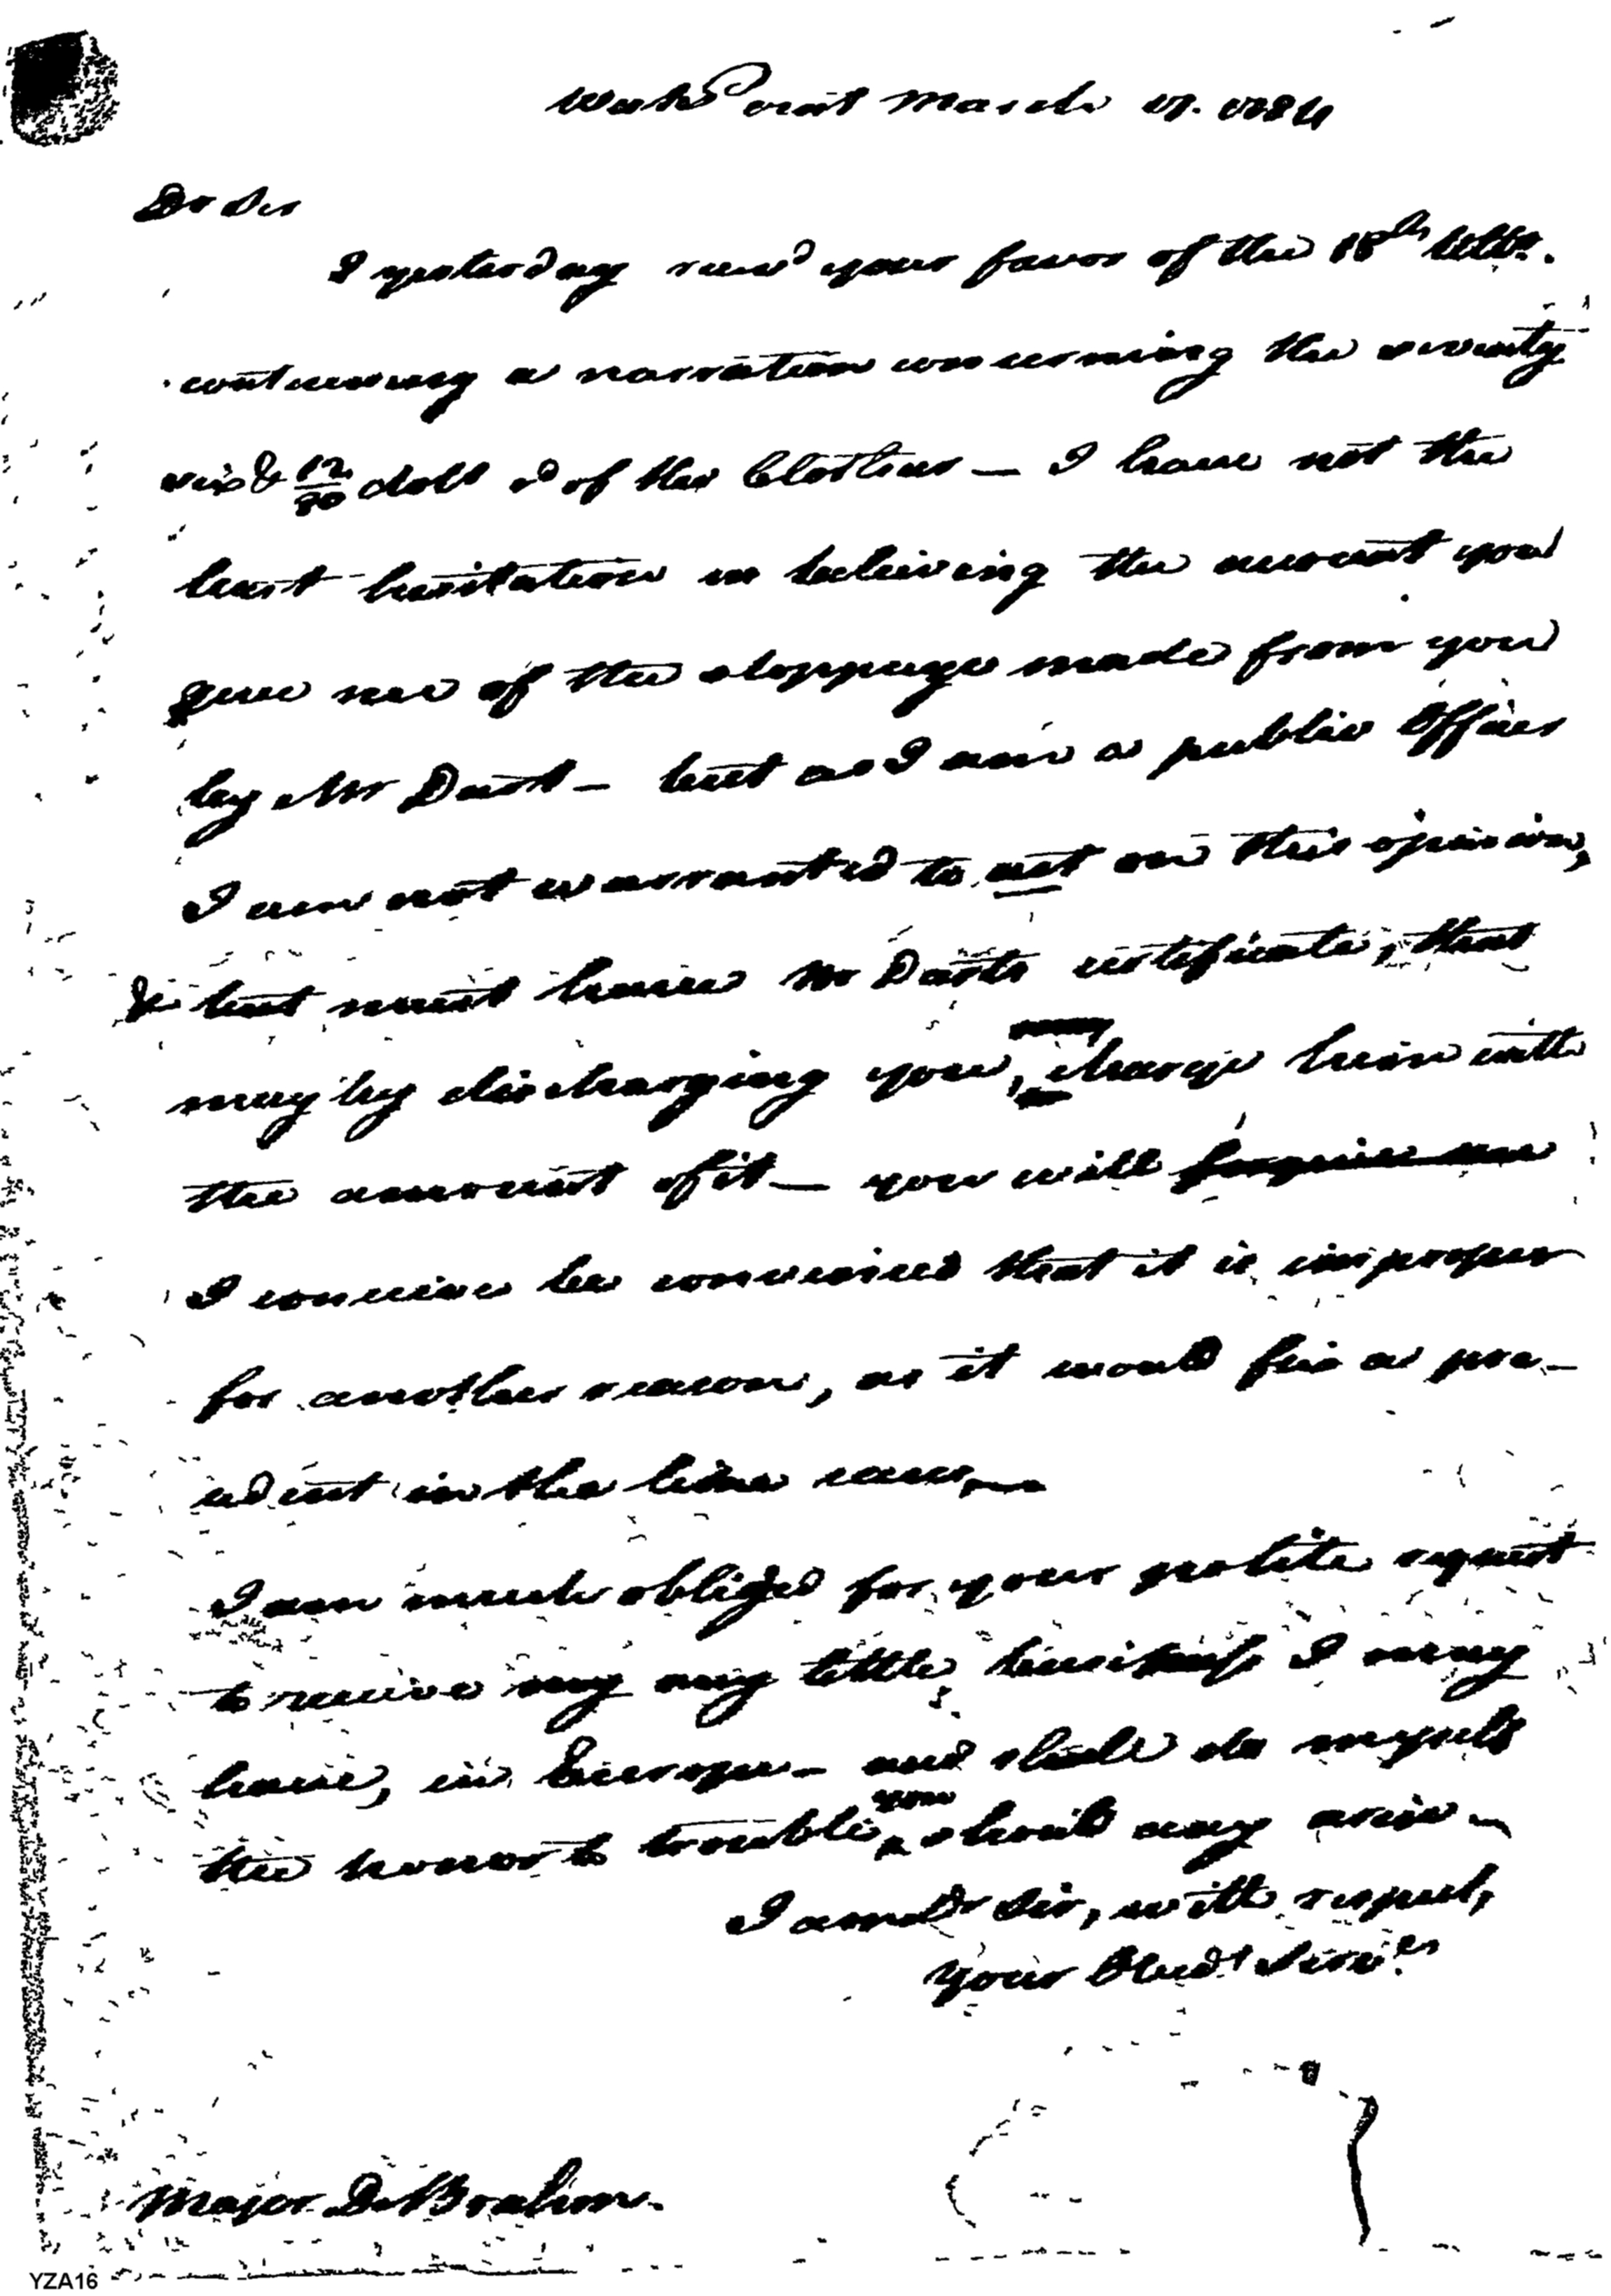 West Point March 17. 1784
Dr Sir
I yesterday recd your favor of the 18th Ulto.
containing a narration concerning the seventy
six & 12/90 dolls rd of the Clothier — I have not the
least hesitation in believing the account you
gave me of the stoppage made from you
by Mr Dart — but as I am a public Officer
I am not warranted to act on this opinion,
& but must have Mr Darts certificate, that
may by discharging you, charge him with
the amount of it — you will forgive me
I conceive be convinced that it is improper
for another reason, as it would fix a pre-
cedent in the like cases,—
I am much obliged for your polite request
to receive my any little business I may
have, in Europe — and shall do myself
the honor to trouble you should any arise —
I am Dr Sir, with respect,
your Obedt Servt
Major De Brahm.
YZA16